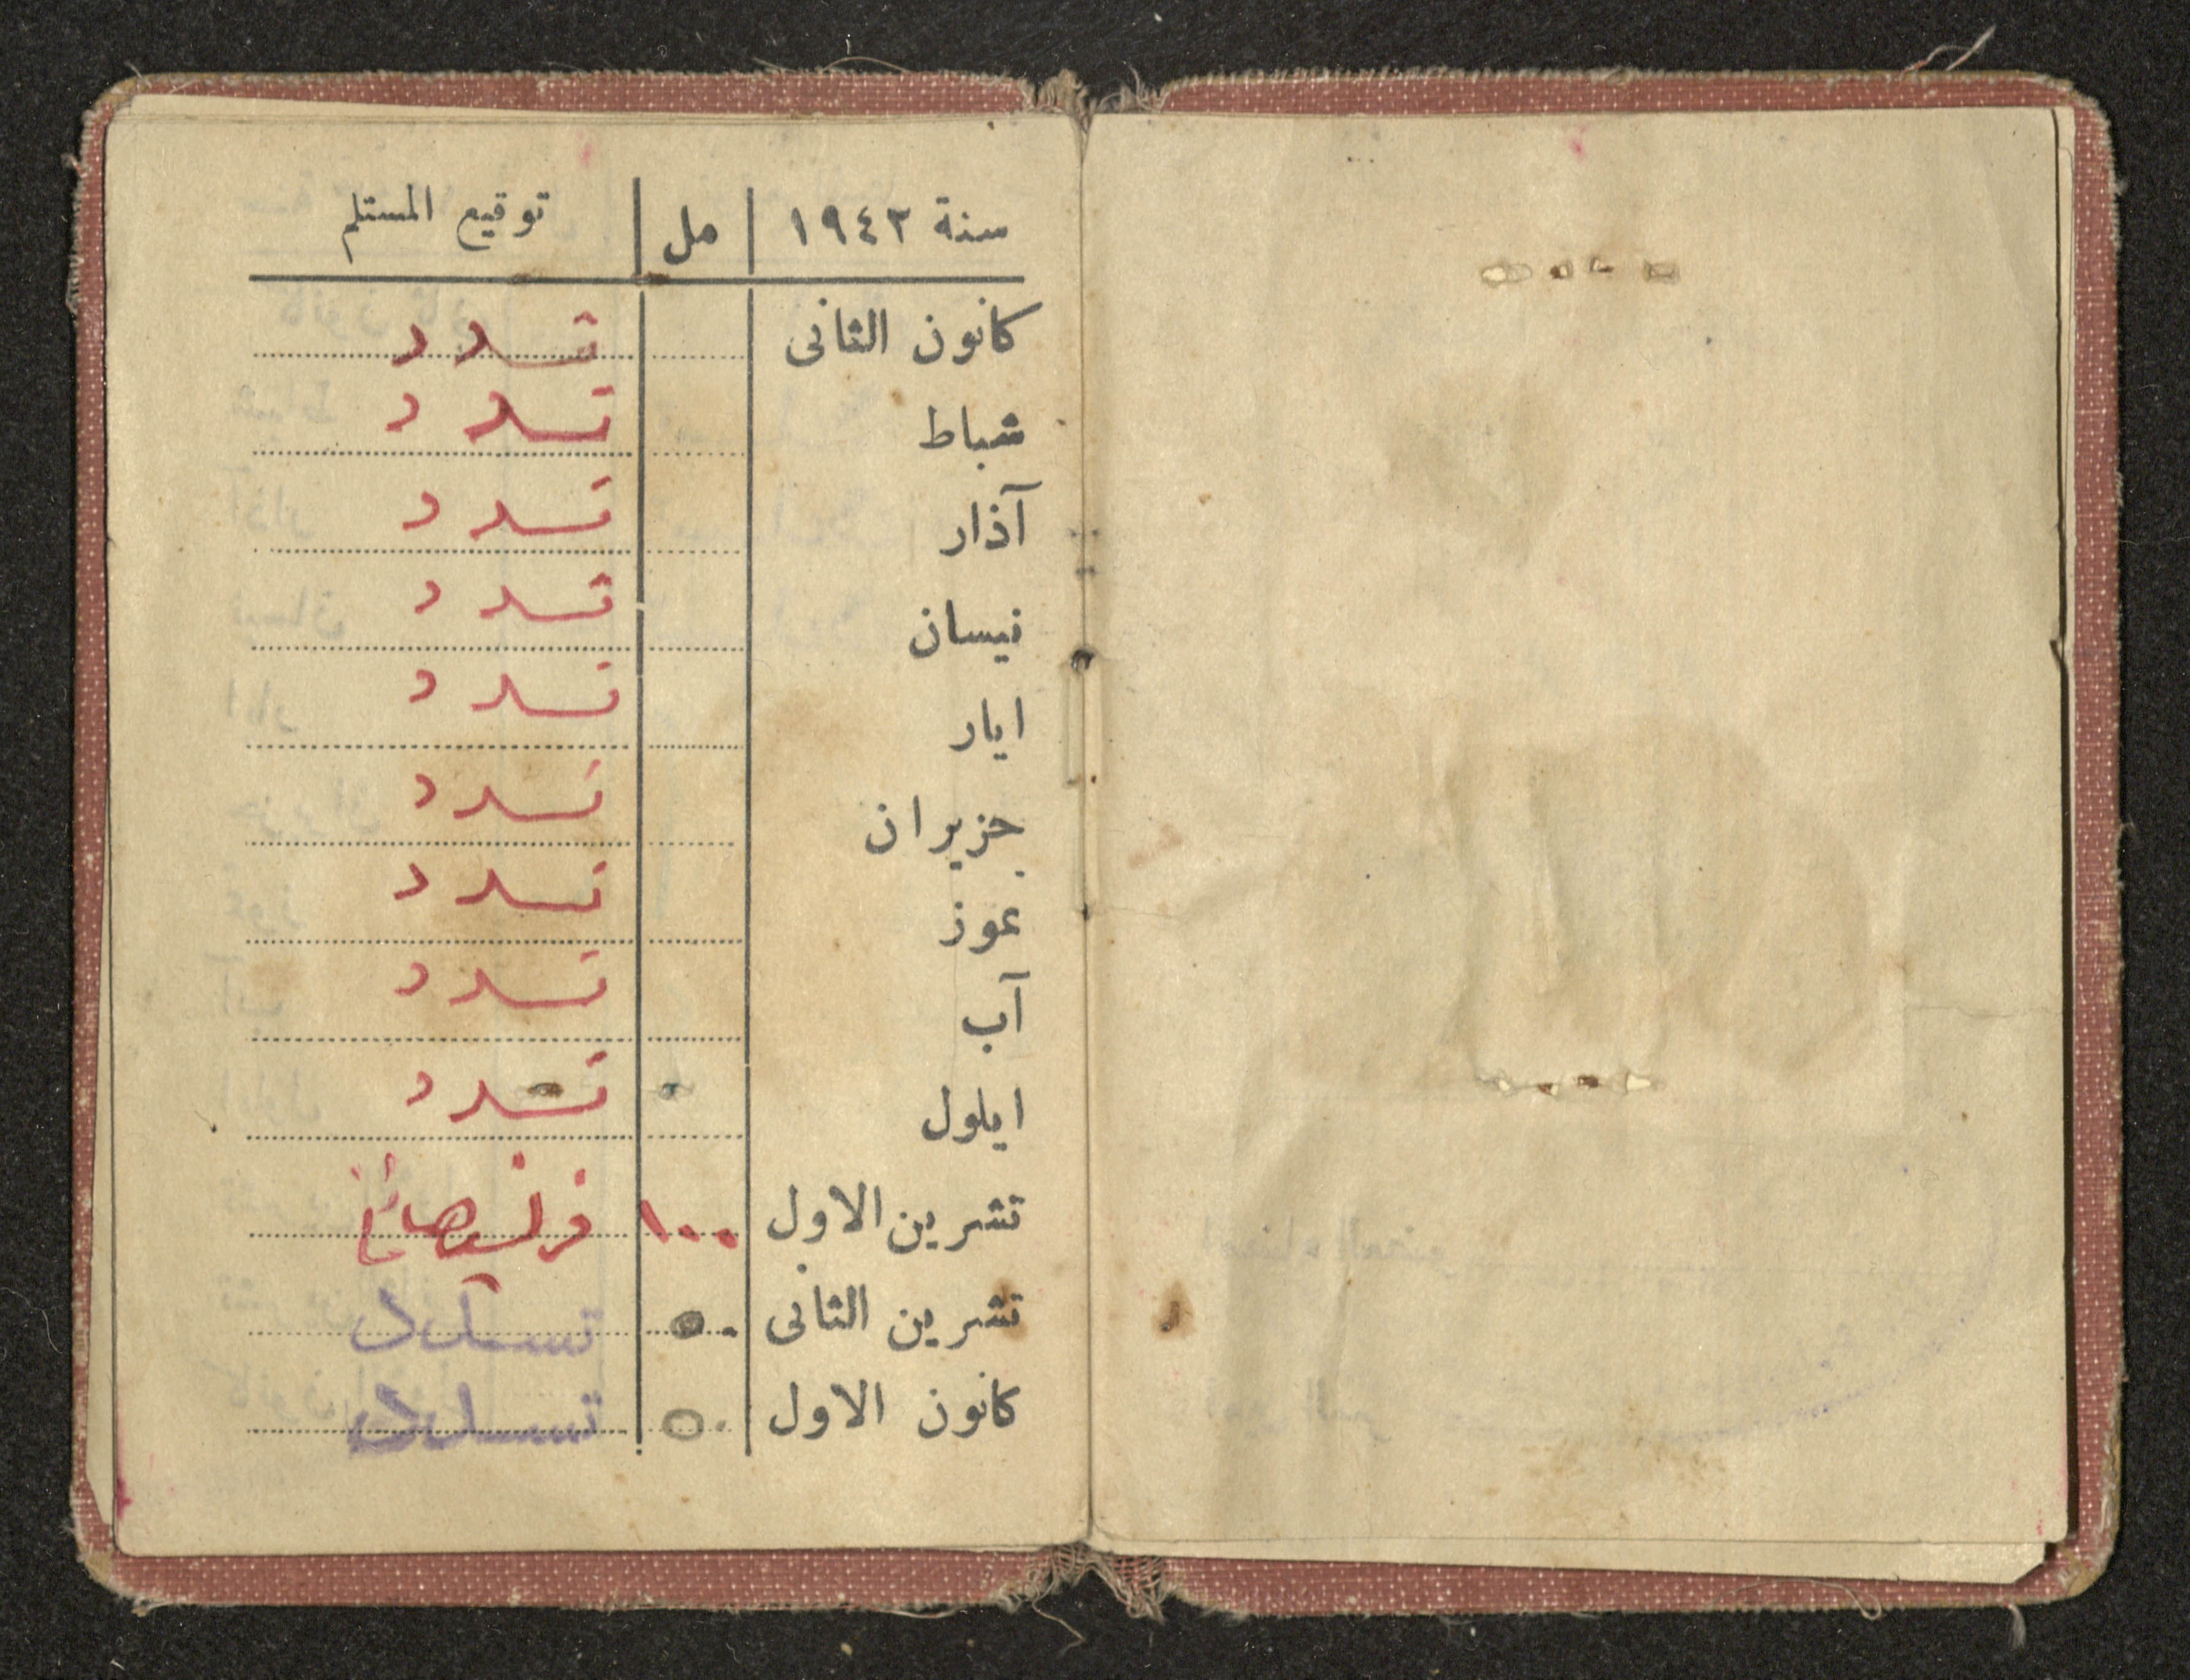 سنة ١٩٤٢ مل توقيع المستلم
كانون الثانى تسدد
شباط تسدد
آذار تسدد
نيسان تسدد
ايار تسدد
حزيران تسدد
تموز تسدد
آب تسدد
ايلول تسدد
تشرين الاول ١٠٠
تشرين الثانى ٥٠ تسدد
كانون الاول ٥٠ تسدد